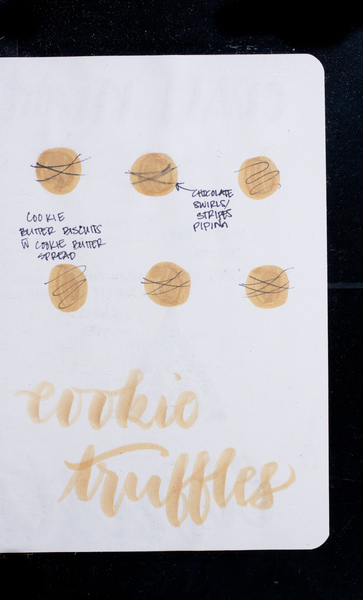 COOKIE
BUTTER BISCUITS
W COOKIE BUTTER
SPREAD
CHOCOLATE
SWIRLS/
STRIPES
PIPING
cookie
truffles